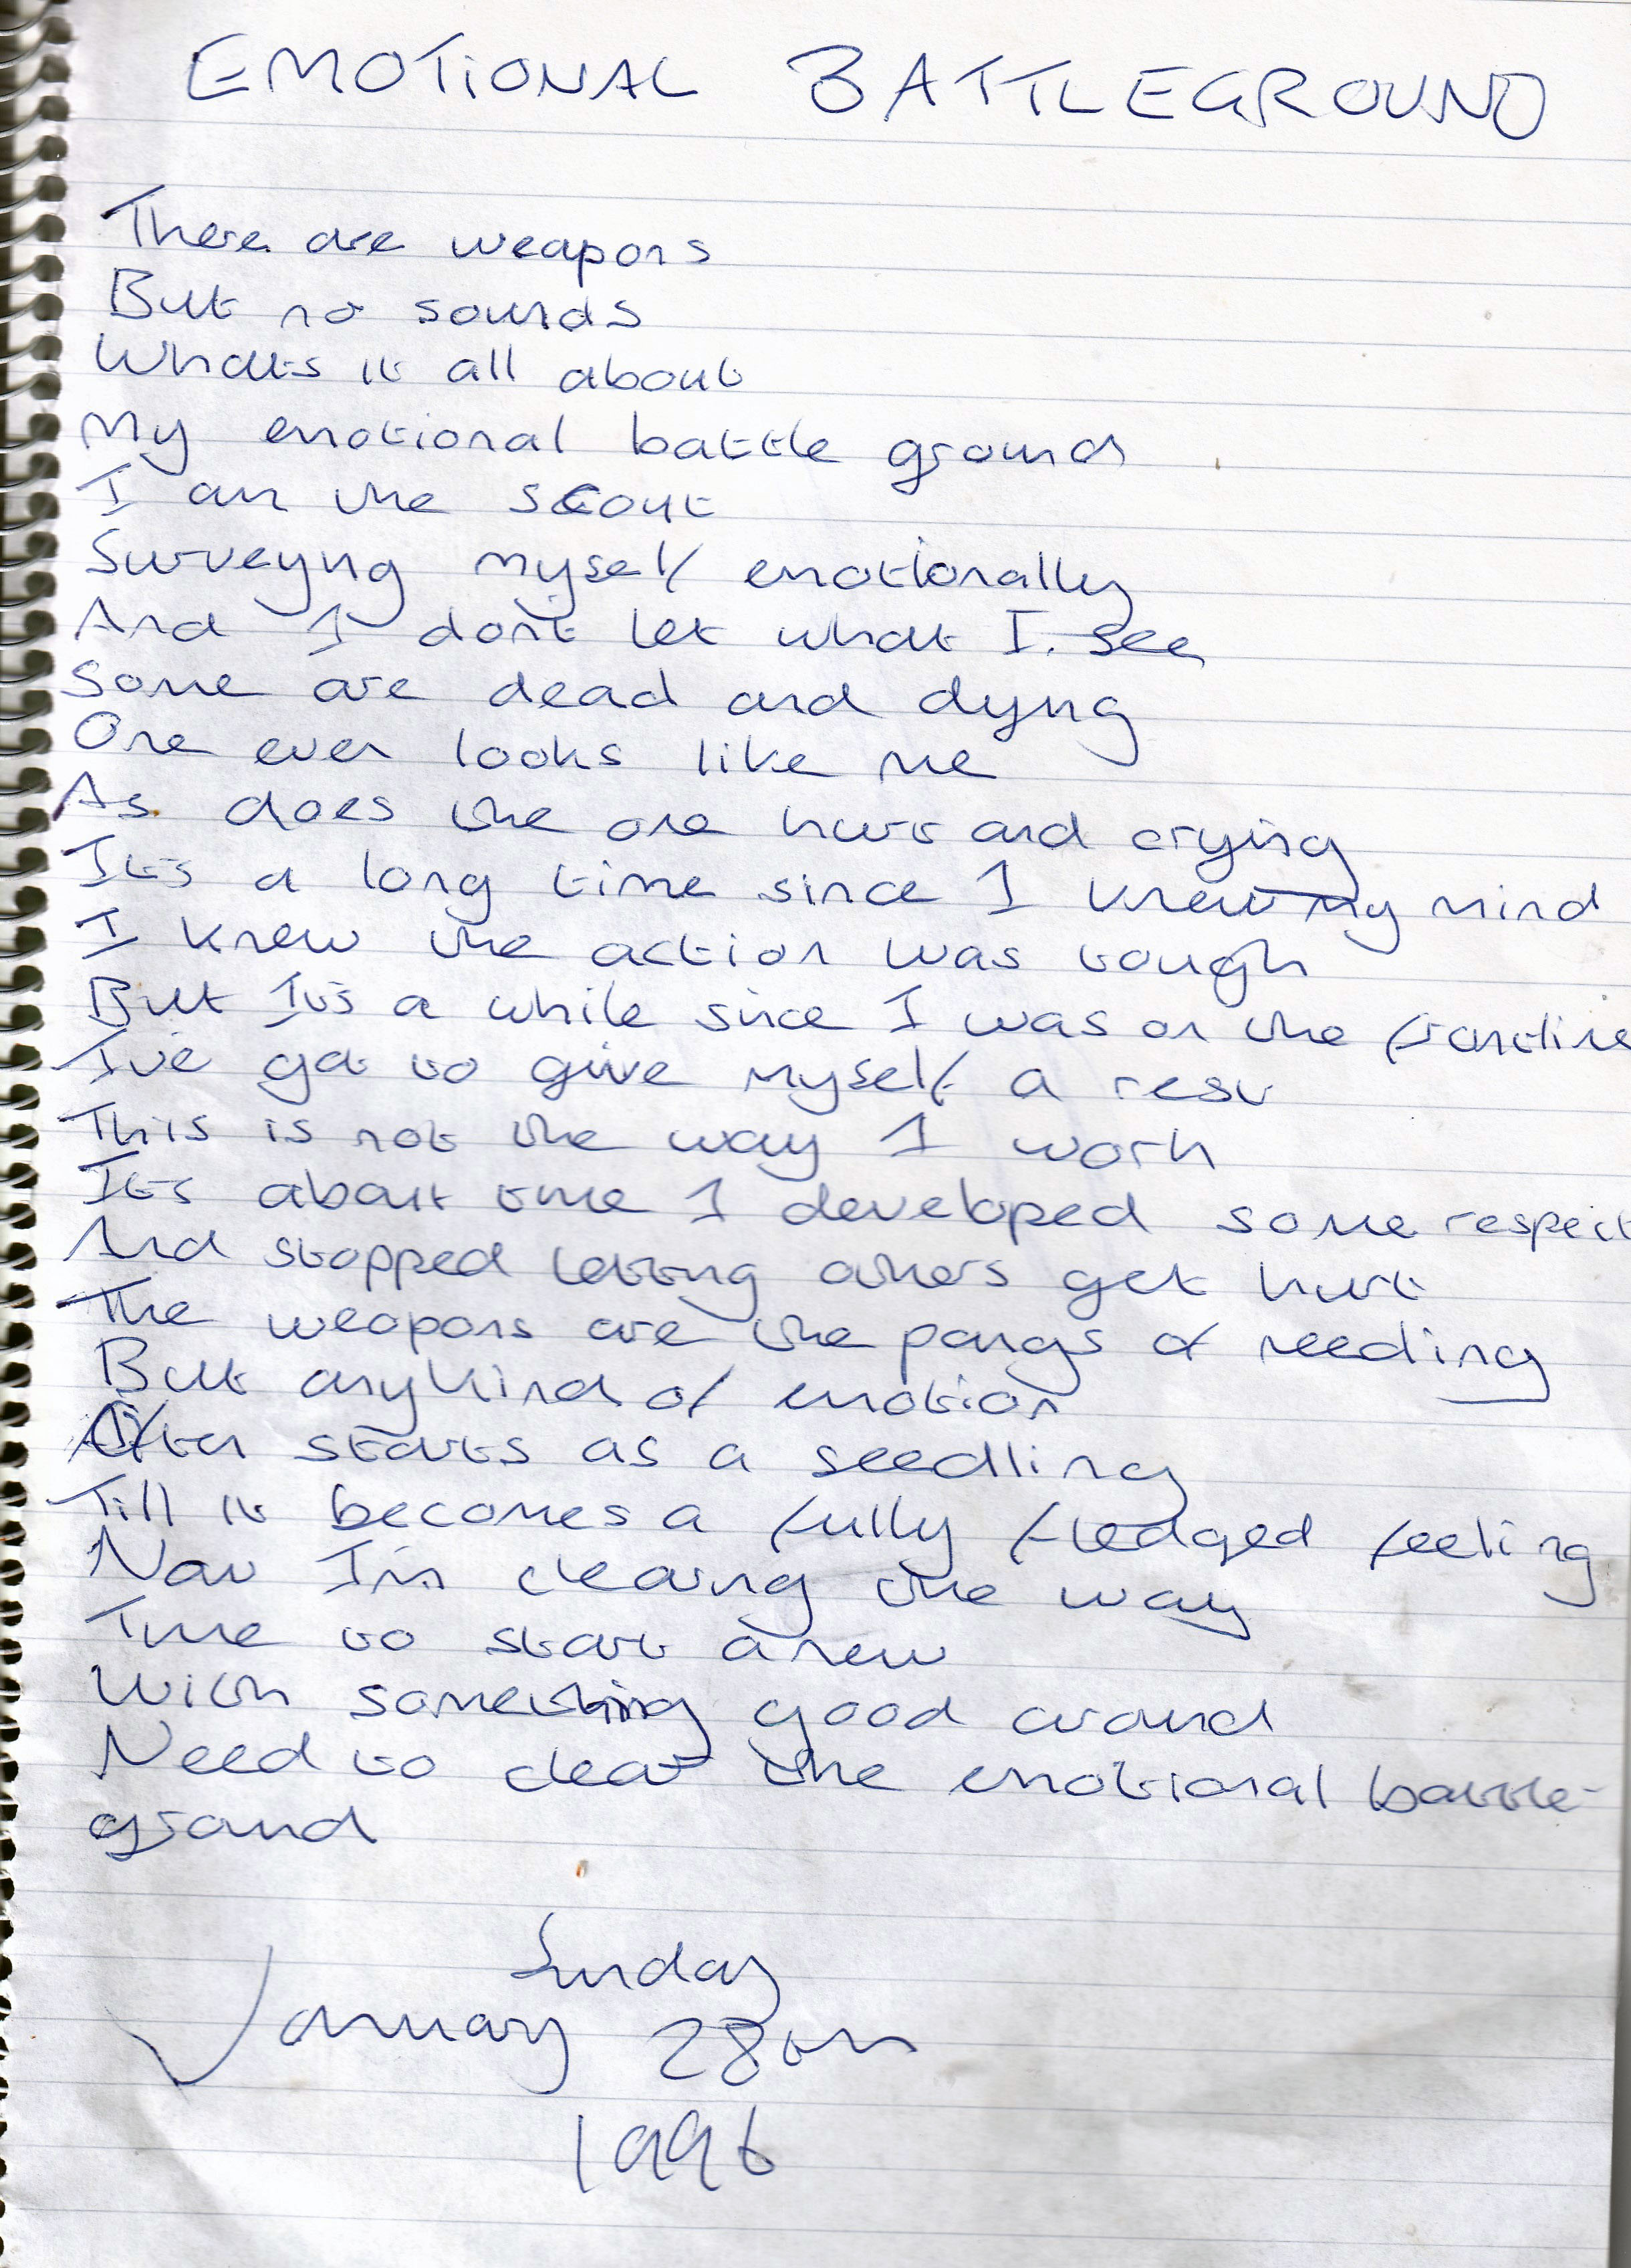 EMOTIONAL BATTLEGROUND
There are weapons
But no sounds
Whats it all about
My emotional battle ground
I am the scout
Surveying myself emotionally
And I don't let what I see
Some are dead and dying
One even looks like me
As does the one hurt and crying
Its a long time since I knew my mind
I knew the action was tough
But Its a while since I was on the frontline
I've got to give myself a rest
This is not the way I work
Its about time I developed some respect
And stopped letting others get hurt
The weapons are the pangs of needing
But any kind of emotion
Often starts as a seedling
Till it becomes a fully fledged feeling
Now I'm clearing the way
Time to start anew
With something good around
Need to clear the emotional battle-
ground
Sunday
January 28th
1996